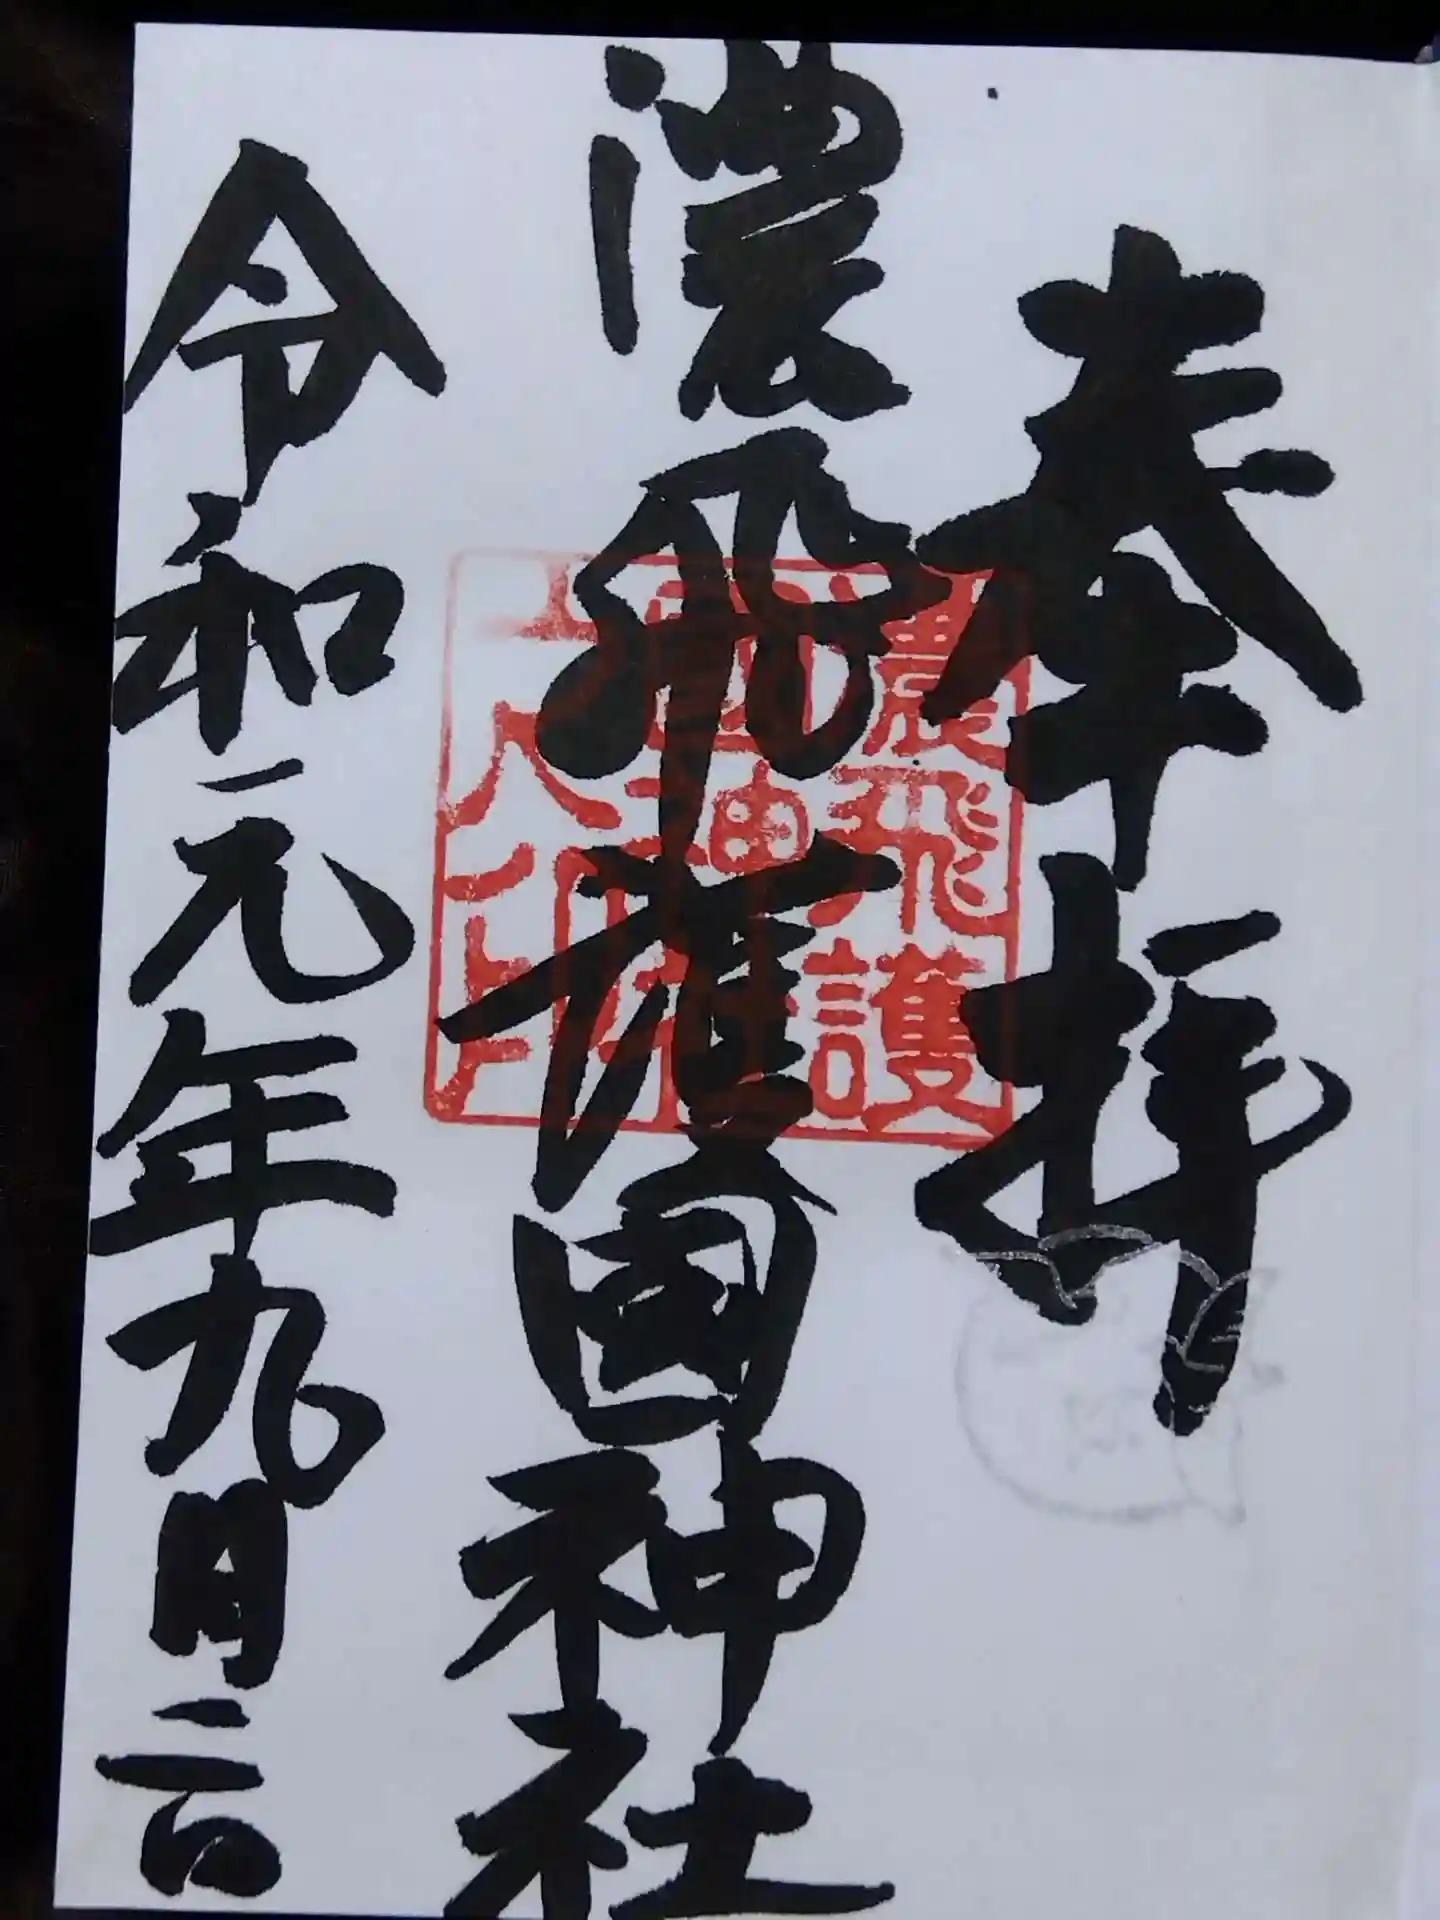 奉拝
濃飛護國神社
令和元年九月二日
濃飛護
國神社